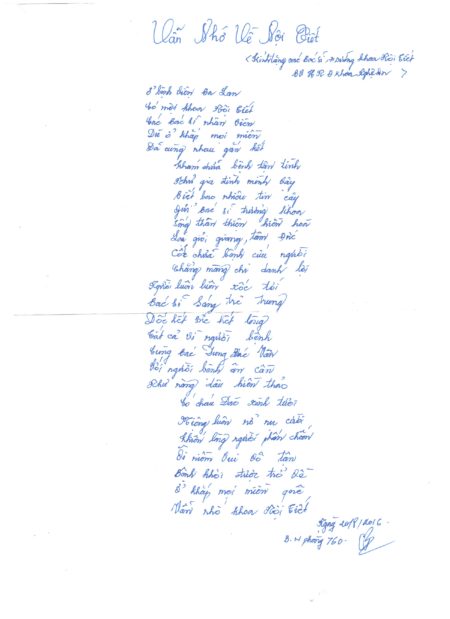 Vẫn Nhớ Về Nội Tiết
(Kính tặng các bác sĩ, trưởng khoa Nội Tiết
BV H N Đ Khoa Nghệ An)
Ở bệnh viện Đa
Có một khoa Nội Tiết
Các bác sĩ nhân viên
Dù ở khắp mọi miền
Đã cùng nhau gắn kết
Khám chữa bệnh tận tình
Như gia đình mình vậy
Biết bao nhiêu tin cậy
Với bác sĩ trưởng khoa
Sống thân thiện hiền hoà
Lại giỏi giang, tâm đức
Cốt chữa bệnh cứu người
Chẳng màng chi danh lợi
Nghĩ luôn luôn xốc tới
Các sĩ trẻ trung
Dốc hết sức hết lòng
Tất cả vì người bệnh
Cùng các Vân
Với người bệnh ân cần
Như nàng dâu hiền thảo
Có cháu Đức xinh tươi
Miệng luôn nở nụ cười
Khiến lòng người phấn chấn
Vì niềm vui vô tận
Bệnh khỏi được trở về
Ở khắp mọi miền quê
Vẫn nhớ khoa Nội Tiết
Ngày 20/8/2016
B.N phòng 760.